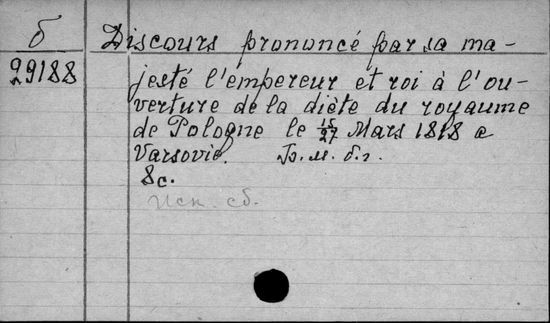 б
29188
Discours prononcé par sa ma-
jesté l'empereur et roi à l'ou-
verture de la diète du royaume
de Pologne le 15/27 Mars 1818 a
Varsovie. Б. м. б. г.
8 с.
Иск. сб.